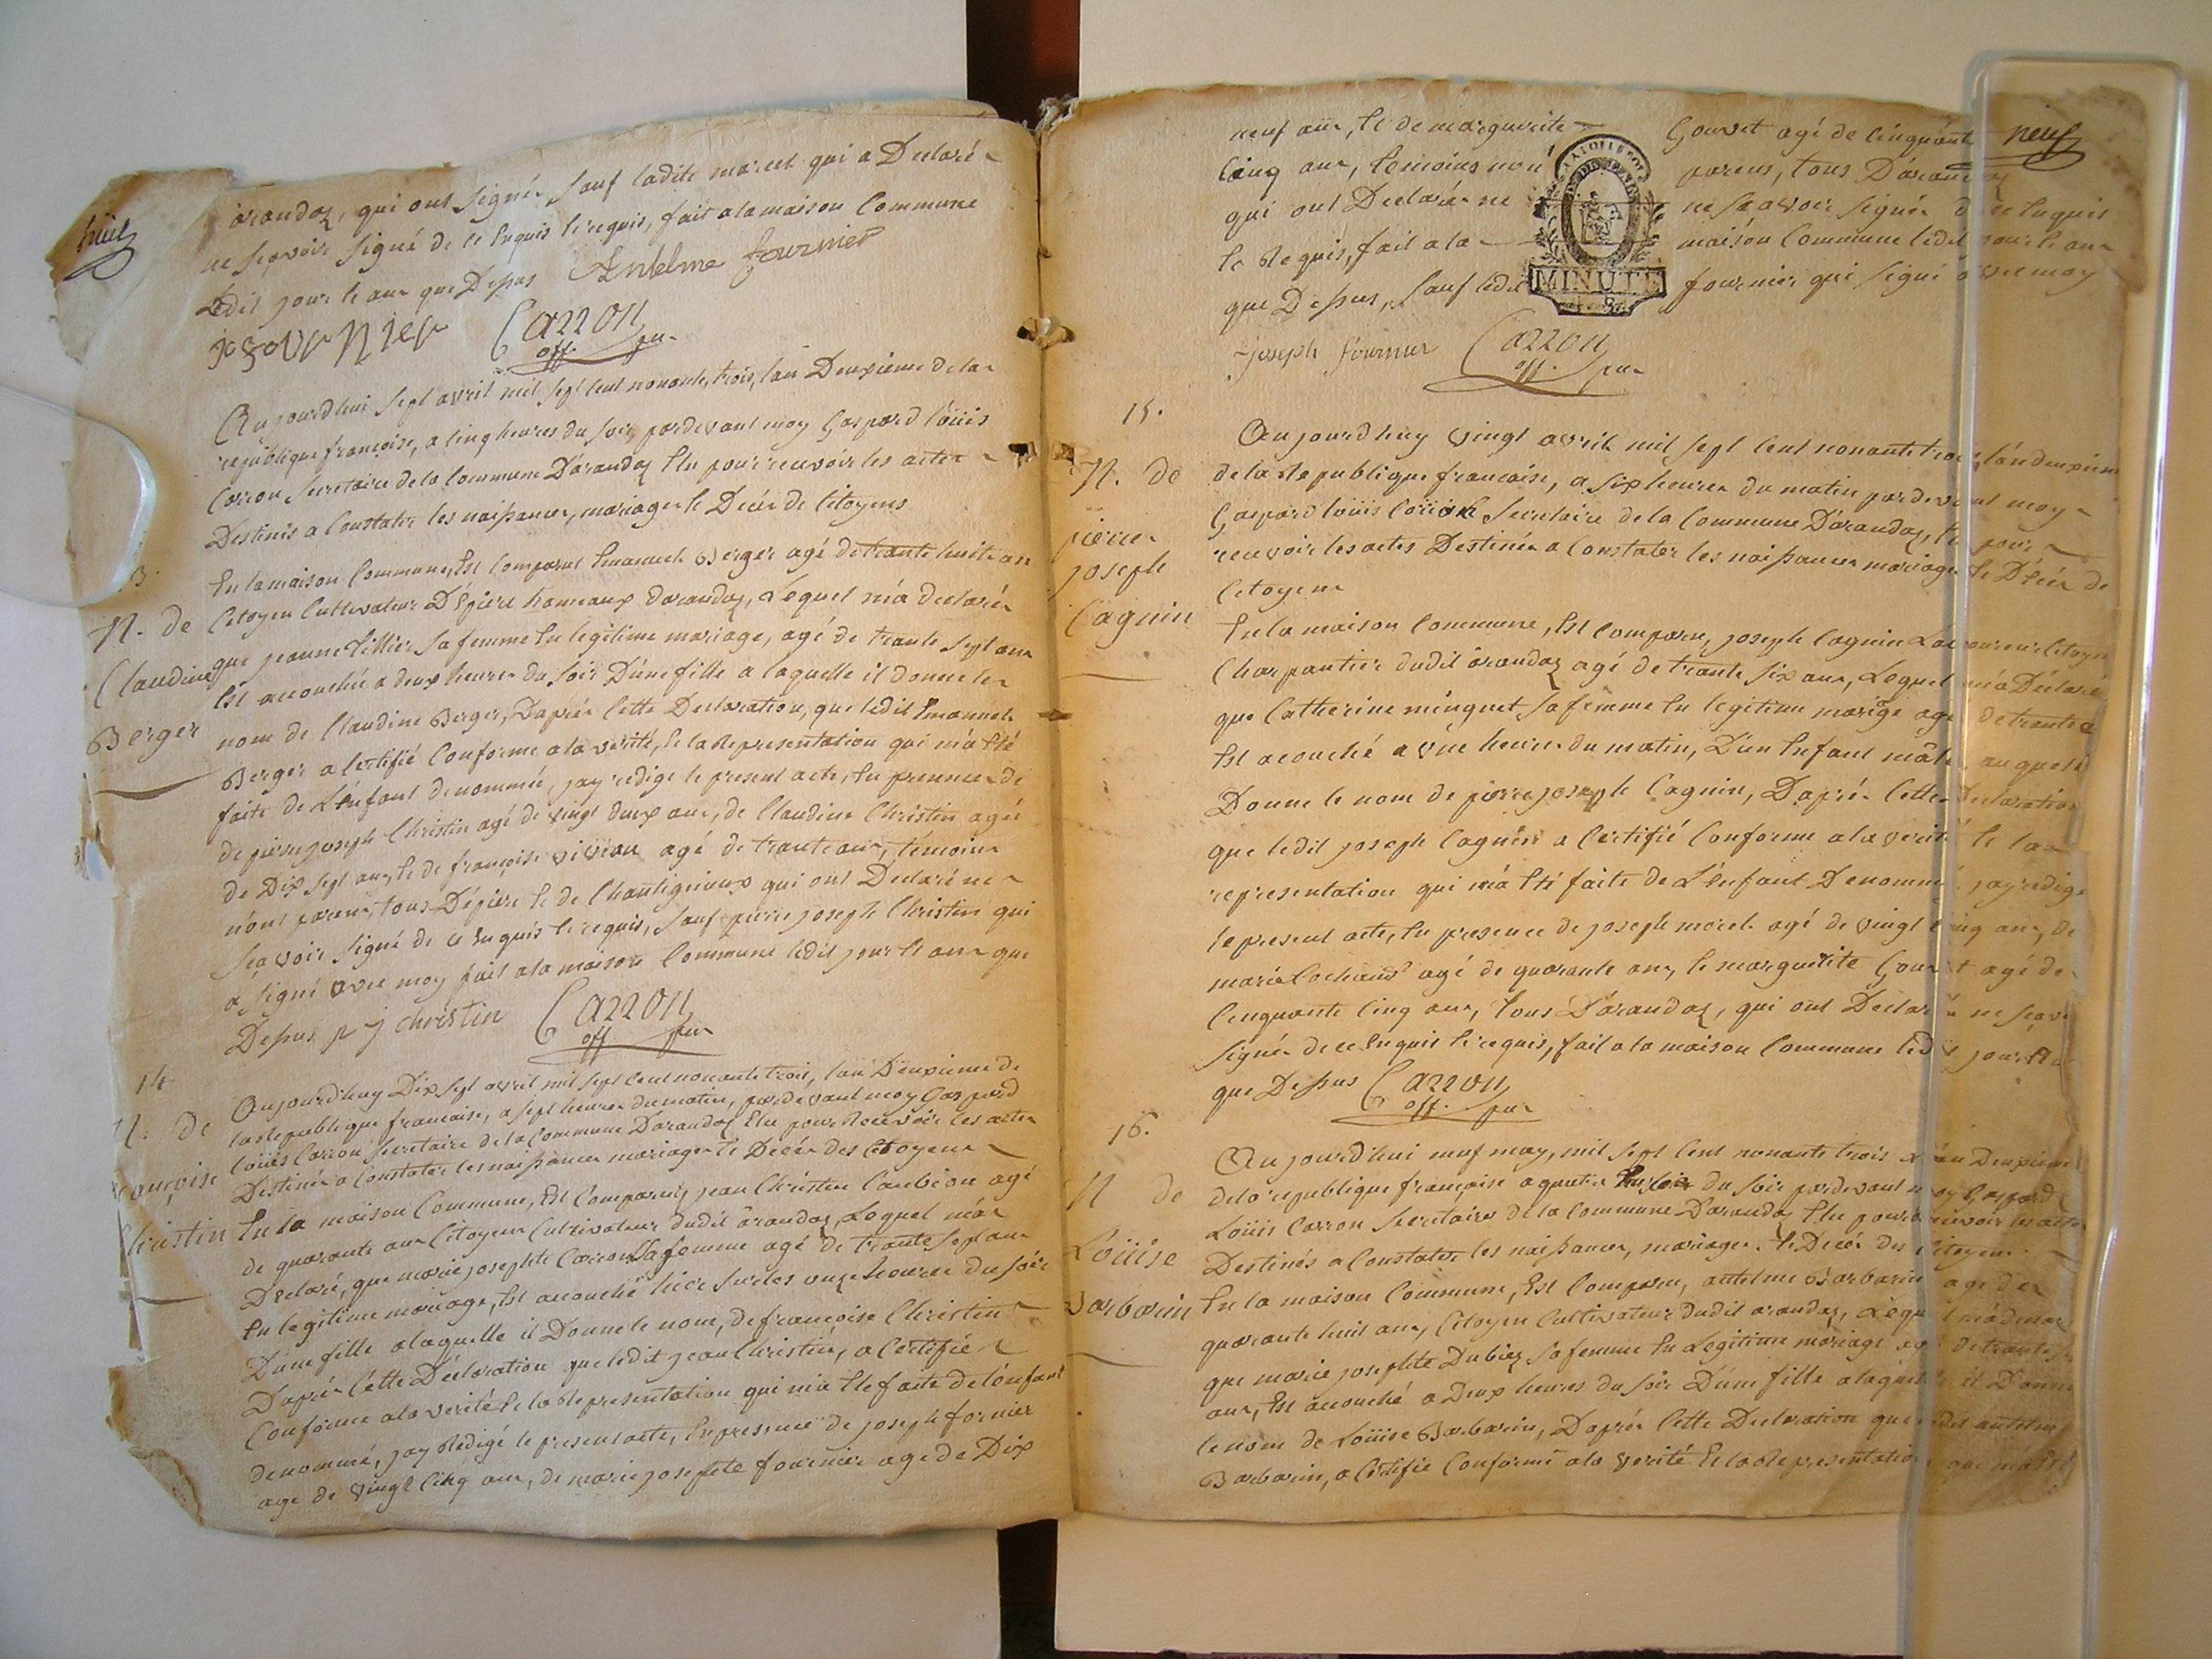 huit
arandaz, qui ont signés sauf ladite morel qui a Declaré
ne scavoir signé de ce Enquis et requis, fait a la maison Commune
Ledit jour et an que Dessus Antelme fournier
Carron
off. pu.
Aujourdhui sept avril mil sept cent nonante trois, lan Deuxieme de la
republique françoise, a cinq heures du soir, pardevant moy Gaspard loüis
Carron Secretaire de la Commune Darandaz Elu pour recevoir les actes
Destinés a Constater les naissances, mariages et Decès de Citoyens
13.
N. de
Claudine
Berger
En la maison Commune, Est Comparut Emanuel Berger agé de trante huit an
Citoyen Cultivateur D'épiere hameaux darandaz, Lequel m'a declaré
que jeanne tillier sa femme En legitime mariage, agé de trante sept ans
Est acouchée a deux heures du soir D'une fille a laquelle il donne le
nom de Claudine Berger, Daprés Cette Declaration, que ledit Emanuel
Berger a Certifié Conforme a la verité, et la Representation qui m'a Eté
faite de L'Enfant denommée, jay redige le present acte, En presence de
de pierre joseph Christin agé de vingt deux ans, de Claudine Christin agée
de Dix sept ans, et de françoise vivian agé de trante ans, témoins
n'ont parens, tous D'épiere et de Chantignieux qui ont Declaré ne
scavoir signé de ce Enquis et requis, sauf pierre joseph Christin qui
a signé avec moy fait a la maison Commune ledit jour et an que
Dessus p j christin Carron
off pu
14
N. de
françoise
Christin
Aujourdhuy Dix sept avril mil sept cent nonante trois, lan Deuxieme de
la Republique francaise, a sept heures du matin, pardevant moy Gaspard
loüis Carron Secretaire de la Commune Darandaz Elu pour Recevoir les actes
Destinés a Constater les naissances mariages et Decès des Citoyens
En la maison Commune, Est Comparut, jean Christin agé
de quarante ans Citoyen Cultivateur dudit arandaz, Lequel m'a
Declaré, que marie josephte Carron sa femme agé de trante sept ans
En legitime mariage, Est acouché hier sur les onze heures du soir
D'une fille a laquelle il Donne le nom, de francoise Christin
Daprés Cette Declaration que ledit jean Christin, a Certifié
Conforme a la verité et la Representation qui m'a Eté faite de l'enfant
denommé, jay Redigé le present acte, En presence de joseph fornier
age de vingt cinq ans, de marie josephte fournier age de Dix
neuf
neuf ans, et de marguerite Gouvet agé de Cinquante
Cinq ans, temoins non parens, tous D'arandaz
qui ont Declarés ne ne scavoir signés de ce Enquis
et Requis, fait a la maison Commune ledit jour et an
que Dessus, sauf ledit fournier qui signé avec moy
MINUTE
joseph fournier Carron
off. pu
15.
N. de
pierre
joseph
Cagnin
Aujourdhuy vingt avril mil sept cent nonante trois, lan deuxieme
de la Republique francaise, a six heures du matin pardevant moy
Gaspard loüis Carron Secretaire de la Commune D'arandaz, Elu pour
recevoir les actes Destinés a Constater les naissances mariages et Decès de
Citoyens
En la maison Commune, Est Comparu, joseph Cagnin Citoyen
Charpantier dudit arandaz agé de trante six ans, Lequel m'a Declaré
que Catherine minguet sa femme En legitime mariage agé de trante
Est acouché a une heure du matin, D'un Enfant mâle, auquel il
Donne le nom de pierre joseph Cagnin, Daprés Cette Declaration
que ledit joseph Cagnin a Certifié Conforme a la verité et la
representation qui m'a Eté faite de L'Enfant Denommé jay redige
le present acte, En presence de joseph morel agé de vingt cinq ans, de
marie Cochand agé de quarante ans, et marguerite Gouvet agé de
Cinquante Cinq ans, tous D'arandaz, qui ont Declaré ne scavoir
signés de ce Enquis et requis, fait a la maison Commune ledit jour et an
que Dessus Carron
off. pu
16.
N de
Loüise
Barbarin
Aujourdhui neuf may, mil sept cent nonante trois Lan Deuxieme
de la republique française a quatre heures du soir pardevant moy Gaspard
Loüis Carron Secretaire de la Commune Darandaz Elu pour recevoir les actes
Destinés a Constater les naissances, mariages, et Decès des Citoyens
En la maison Commune, Est Comparu, antelme Barbarin agé de
quarante huit ans, Citoyen Cultivateur dudit arandaz, Lequel m'a declaré
que marie josephte Dubiez sa femme En Legitime mariage agé de trante
ans, Est acouché a Deux heures du soir D'une fille a laquelle il Donne
le nom de Loüise Barbarin, Daprés Cette Declaration que ledit antelme
Barbarin, a Certifie Conforme a la verité Et la Representation qui m'a Eté